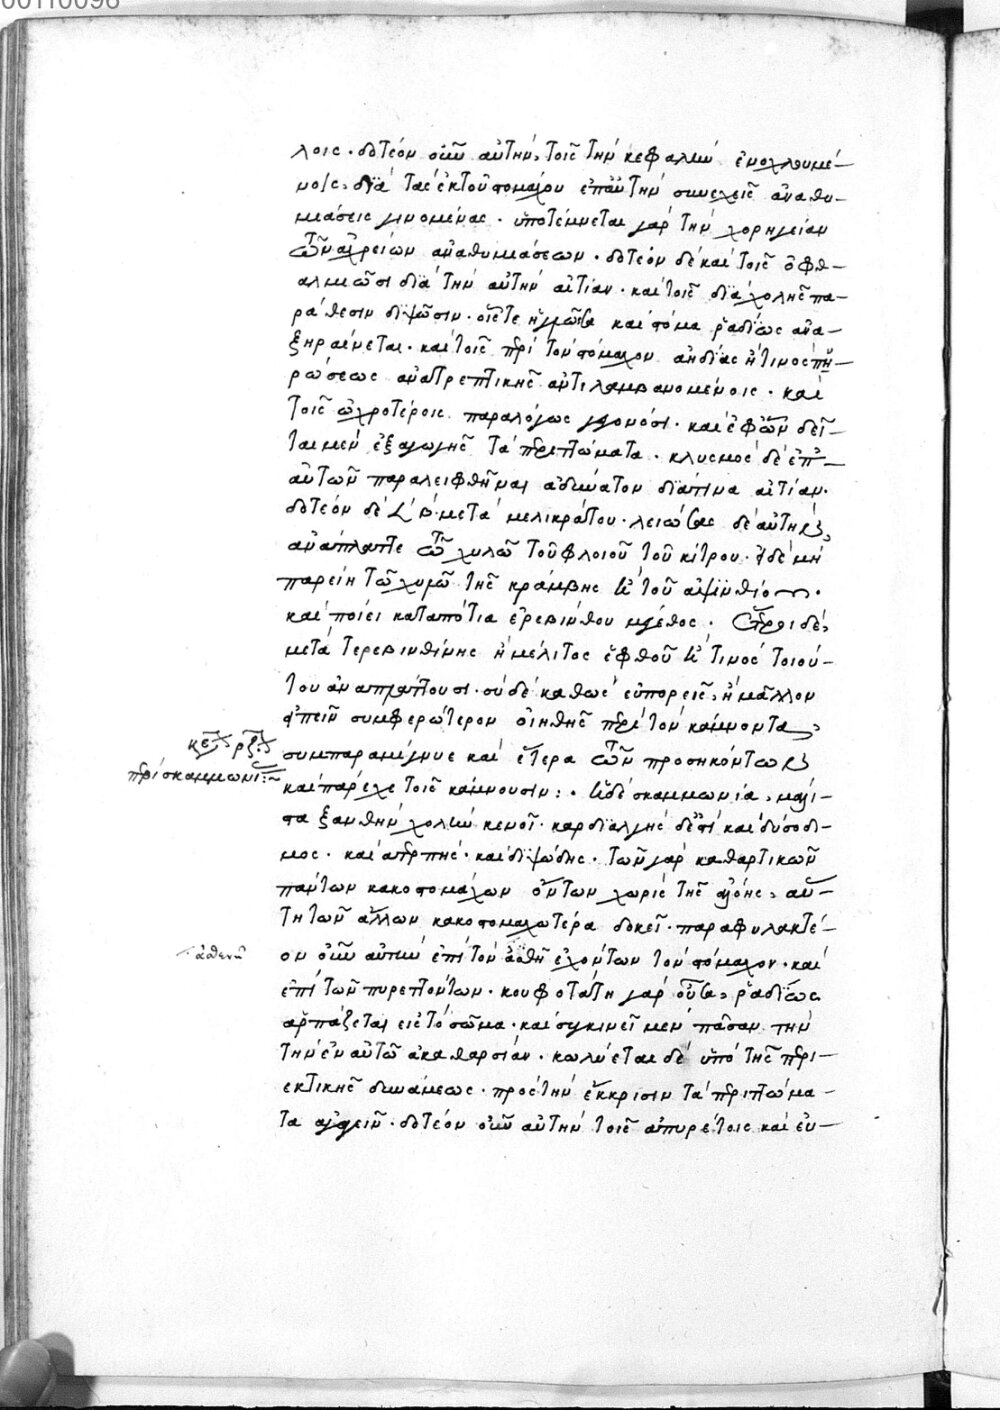 00110096
λοις · δοτέον οὖν αὐτὴν, τοῖς τὴν κεφαλὴν ἐνοχλουμέ-
νοις, διὰ τὰς ἐκ τοῦ στομάχου ἐπ' αὐτὴν συνεχεῖς ἀναθυ-
μιάσεις γινομένας · ὑποτέμνεται γὰρ τὴν χορηγείαν
τῶν ἀχρείων ἀναθυμιάσεων · δοτέον δὲ καὶ τοῖς ὀφθ-
αλμιῶσι διὰ τὴν αὐτὴν αἰτίαν · καὶ τοῖς διὰ χολῆς πα-
ράθεσιν διψῶσιν · οἷς τε ἡ γλῶττα καὶ στόμα ῥαδίως ἀνα-
ξηραίνεται · καὶ τοῖς περὶ τὸν στόμαχον ἀηδίας ἤ τινος πη-
ρώσεως ἀνατρεπτικῆς ἀντιλαμβανομένοις · καὶ
τοῖς ὠχροτέροις παραλόγως γεγονόσι · καὶ ἐφ' ὧν δεῖ-
ται μὲν ἐξαγωγῆς τὰ περιττώματα · κλυσμὸς δὲ ἐπ'
αὐτῶν παραλειφθῆναι ἀδύνατον διά τινα αἰτίαν ·
δοτέον δὲ 𐅻 β · μετὰ μελικράτου · λειώσας δὲ αὐτὴν,
ἀνάπλαττε τῷ χυλῷ τοῦ φλοιοῦ τοῦ κίτρου · εἰ δὲ μὴ
παρείη τῷ χυμῷ τῆς κράμβης ἢ τοῦ ἀψινθίου ·
καὶ ποίει καταπότια ἐρεβίνθου μέγεθος · ἕτεροι δὲ,
μετὰ τερεβινθίνης ἢ μέλιτος ἑφθοῦ ἢ τινὸς τοιού-
του ἀναπλάττουσι · σὺ δὲ καθὼς εὐπορεῖς, ἢ μᾶλλον
εἰπεῖν συμφερώτερον οἰηθῇς περὶ τὸν κάμνοντα,
συμπαραμίγνυε καὶ ἕτερα τῶν προσηκόντων
κεφ. ρξ
περὶ σκαμμωνίας :~
καὶ πάρεχε τοῖς κάμνουσιν : · ἡ δὲ σκαμμωνία, μάλι-
στα ξανθὴν χολὴν κενοῖ · καρδιαλγὴς δέ ἐστι καὶ δύσοδ-
μος · καὶ ἀτερπὴς · καὶ διψώδης · τῶν γὰρ καθαρτικῶν
πάντων κακοστομάχων ὄντων χωρὶς τῆς ἀλόης, αὕ-
τη τῶν ἄλλων κακοστομαχωτέρα δοκεῖ · παραφυλακτέ-
ἀσθενῆ
ον οὖν αὐτὴν ἐπὶ τῶν ἀσθενῆ ἐχόντων τὸν στόμαχον · καὶ
ἐπὶ τῶν πυρεττόντων · κουφοτάτη γὰρ οὖσα, ῥαδίως
ἁρπάζεται εἰς τὸ σῶμα · καὶ συγκινεῖ μὲν πᾶσαν τὴν
τὴν ἐν αὐτῷ ἀκαθαρσίαν · κωλύεται δὲ ὑπὸ τῆς περι-
εκτικῆς δυνάμεως · πρὸς τὴν ἔκκρισιν τὰ περιττώμα-
τα ἄγειν · δοτέον οὖν αὐτὴν τοῖς ἀπυρέτοις καὶ εὐ-